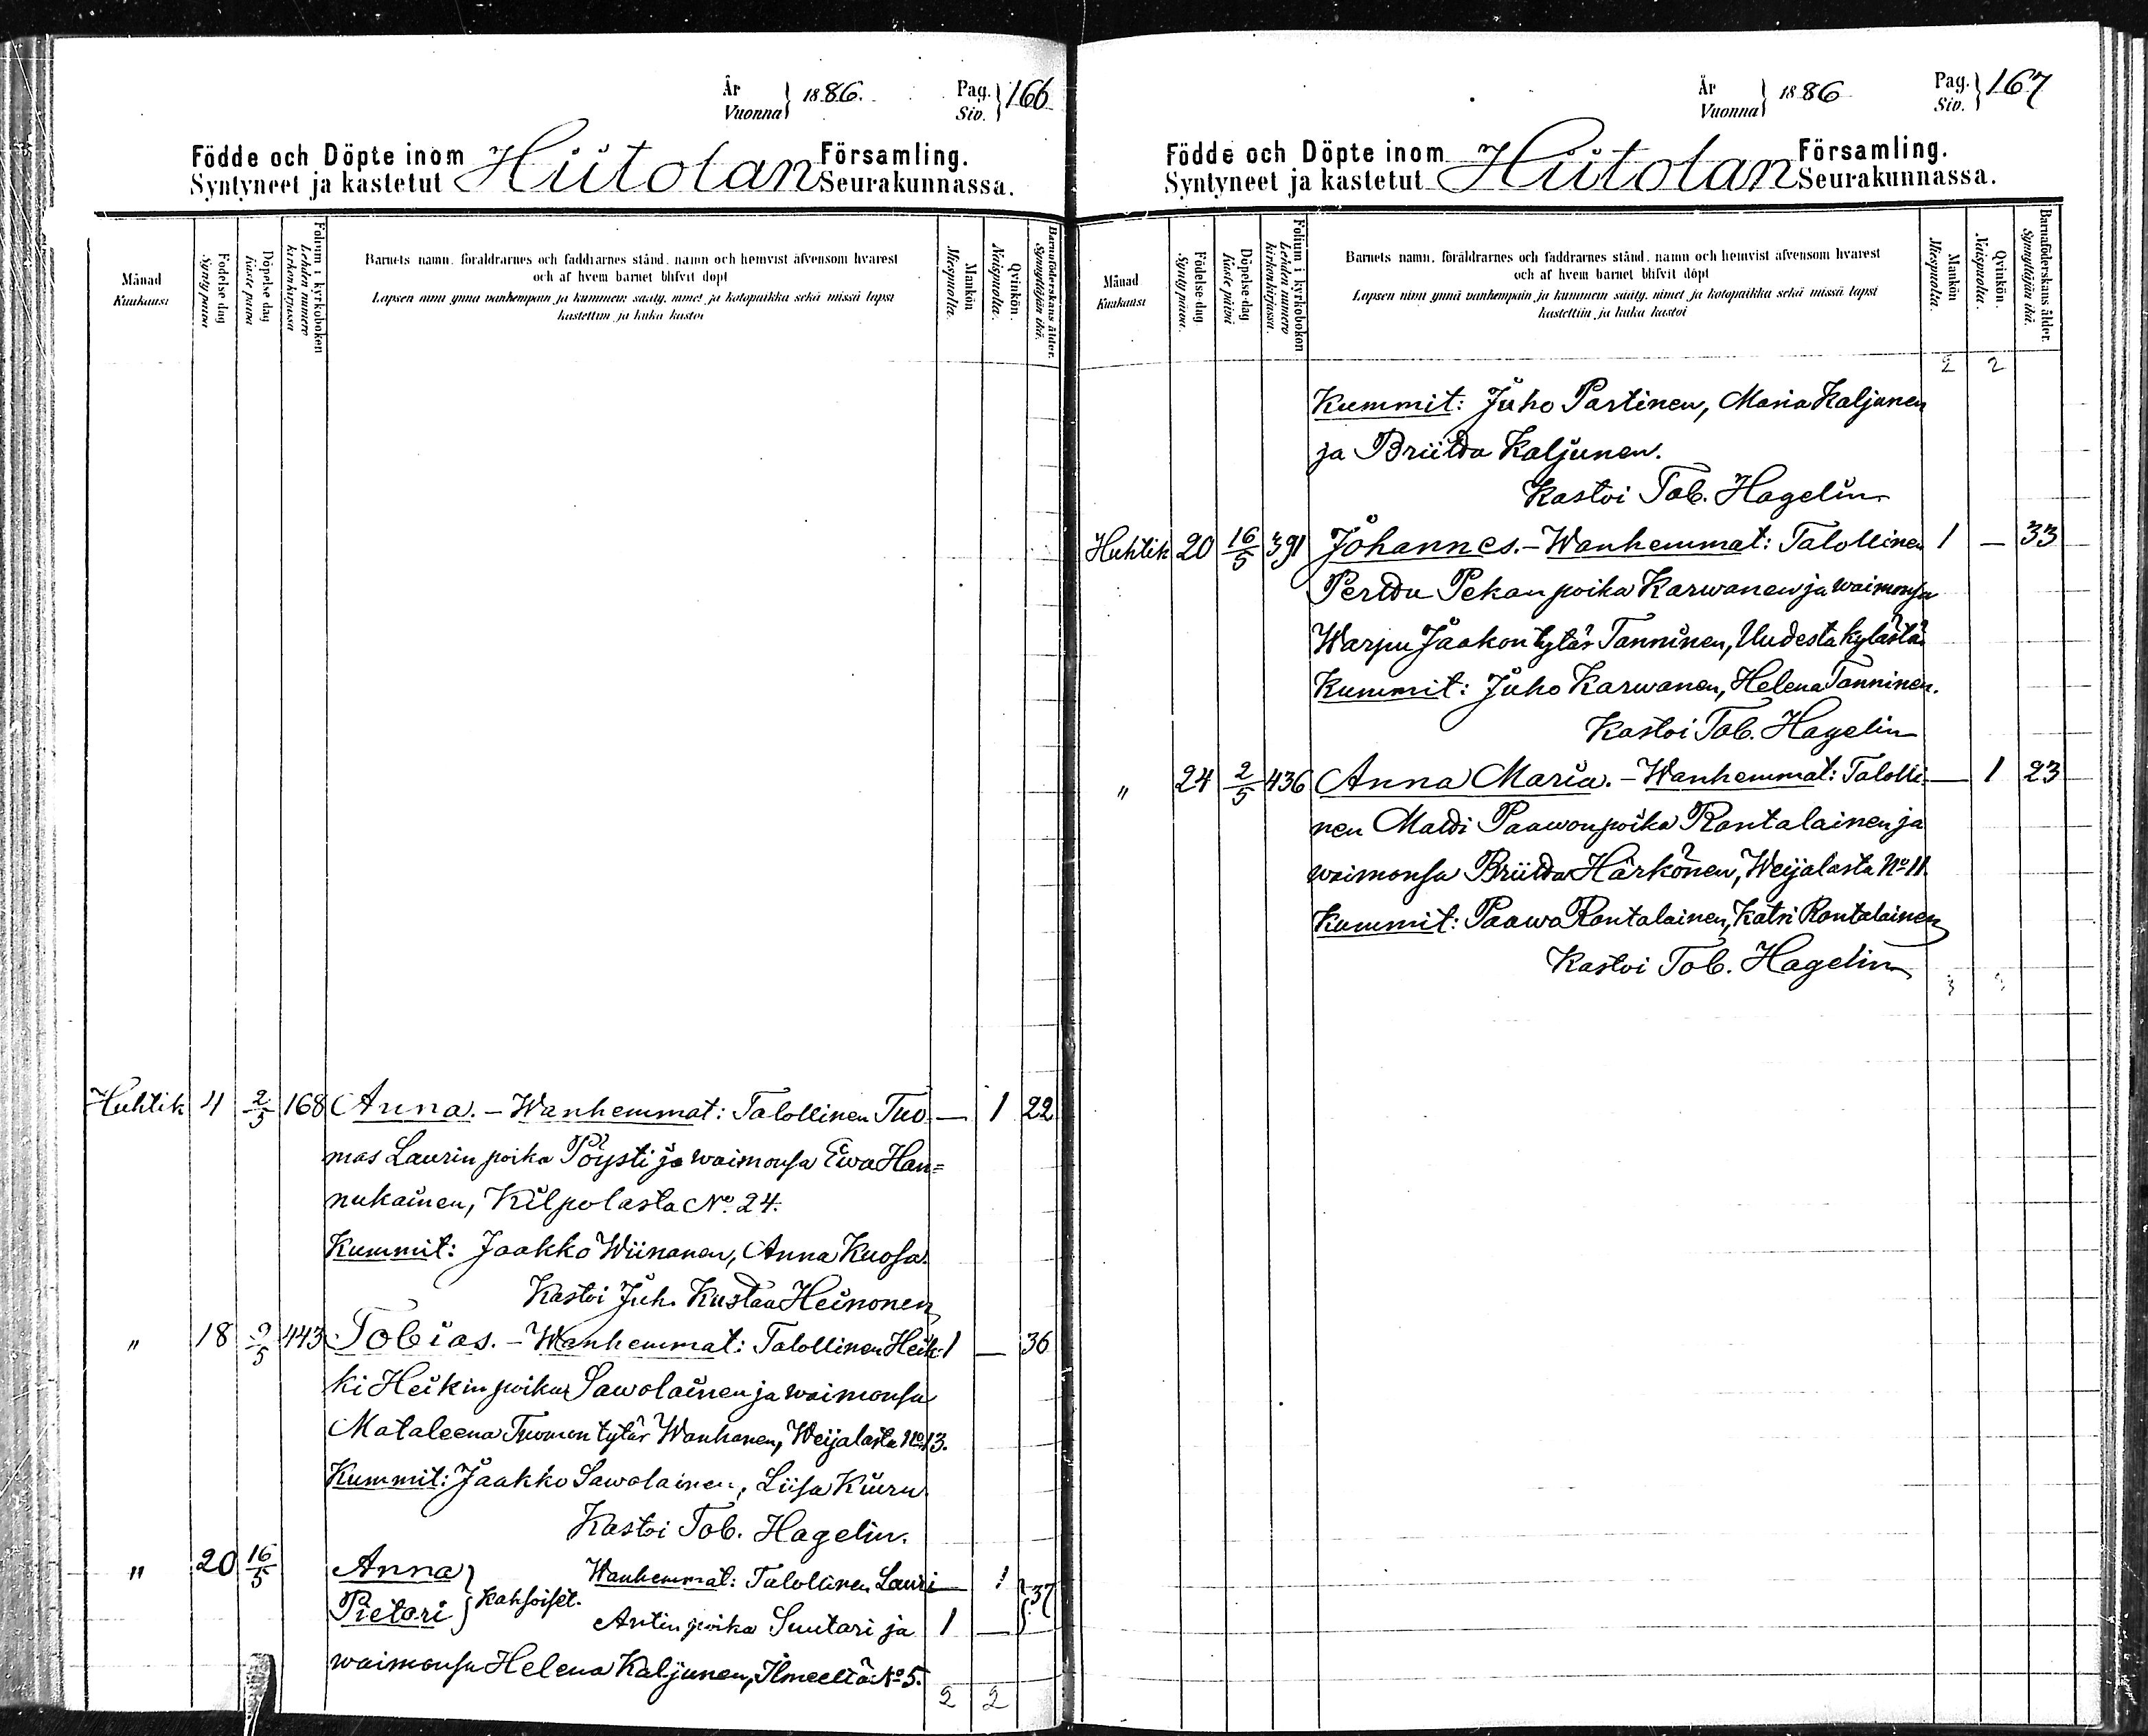 År Vuonna } 1886. Pag. Siv. } 166
Födde och Döpte inom Hiitolan Församling.
Syntyneet ja kastetut Seurakunnassa.
Månad Kuukausi
Födelse-dag Synty päivä
Döpelse dag Kaste päivä
Folium i kyrkoboken Lehden numero kirkonkirjassa
Barnets namn, föräldrarnes och faddrarnes stånd, namn och hemvist äfvensom hvarest
och af hvem barnet blifvit döpt
Lapsen nimi ynnä vanhempain ja kummein sääty, nimet ja kotopaikka sekä missä lapsi
kastettiin ja kuka kastoi
Mankön Miespuolia.
Qvinkön. Naispuolia.
Barnaföderskans ålder. Synnyttäjän ikä.
Huhtik 4 2/5 168 Anna. - Wanhemmat: Talollinen Tuo- — 1 22
mas Laurin poika Pöysti ja waimonsa Ewa Han=
nukainen, Kilpolasta No. 24.
Kummit: Jaakko Wiinanen, Anna Kuosa.
Kastoi Juh. Kustaa Heinonen
" 18 2/5 443 Tobias. - Wanhemmat: Talollinen Heik- 1 — 36
ki Heikin poika Sawolainen ja waimonsa
Mataleena Tuomon tytär Wanhanen, Weijalasta No 13.
Kummit: Jaakko Sawolainen, Liisa Kiuru
Kastoi Tob. Hagelin.
" 20 16/5 Anna } Wanhemmat: Talollinen Lauri — 1 } 37
Pietari } Kaksoiset. Antin poika Suutari ja 1 —
waimonsa Helena Kaljunen, Ilmeeltä No 5.
2 2
År Vuonna } 1886 Pag. Siv. } 167
Födde och Döpte inom Hiitolan Församling.
Syntyneet ja kastetut Seurakunnassa.
Månad Kuukausi
Födelse-dag Synty päivä.
Döpelse-dag Kaste päivä
Folium i kyrkoboken Lehden numero kirkonkirjassa.
Barnets namn, föräldrarnes och faddrarnes stånd, namn och hemvist äfvensom hvarest
och af hvem barnet blifvit döpt
Lapsen nimi ynnä vanhempain ja kummein sääty, nimet ja kotopaikka sekä missä lapsi
kastettiin ja kuka kastoi
Mankön Miespuolia.
Qvinkön. Naispuolia.
Barnaföderskans ålder. Synnyttäjän ikä.
2 2
Kummit: Juho Partinen, Maria Kaljunen
ja Briitta Kaljunen.
Kastoi Tob. Hagelin
Huhtik 20 16/5 391 Johannes. - Wanhemmat: Talollinen 1 — 33
Perttu Pekan poika Karwanen ja waimonsa
Warpu Jaakon tytär Tanninen, Uudesta kylästä
Kummit: Juho Karwanen, Helena Tanninen.
Kastoi Tob. Hagelin
" 24 2/5 436 Anna Maria. - Wanhemmat: Talolli- — 1 23
nen Matti Paawon poika Rantalainen ja
waimonsa Briitta Härkönen, Weijalasta No 11.
Kummit: Paawo Rantalainen, Katri Rantalainen
Kastoi Tob. Hagelin
3 3